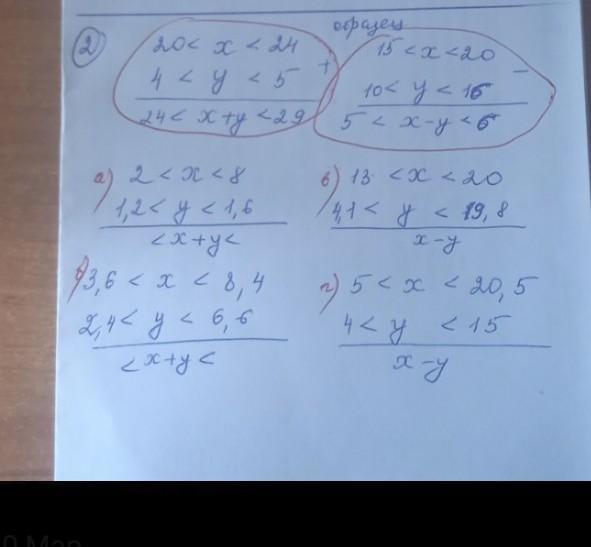 образец
2) 20 < x < 24
4 < y < 5 +
24 < x+y < 29
15 < x < 20
10 < y < 16 −
5 < x-y < 6
а) 2 < x < 8
1,2 < y < 1,6
< x+y <
в) 13 < x < 20
4,1 < y < 19,8
x-y
б) 3,6 < x < 8,4
2,4 < y < 6,6
< x+y <
г) 5 < x < 20,5
4 < y < 15
x-y